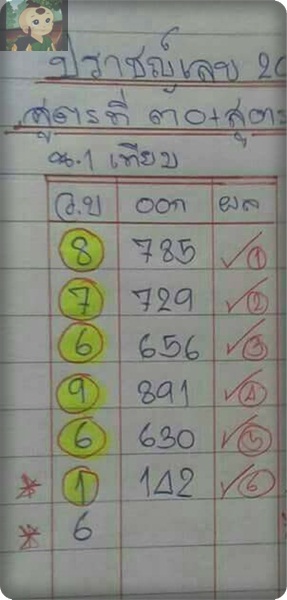 ปราชญ์เลข 20
สูตรที่ ๓๐+สูตร
น.1 เทียบ
ว.บ ออก ผล
8 785 ✓1
7 729 ✓2
6 656 ✓3
9 891 ✓4
6 630 ✓5
* 1 142 ✓6
* 6